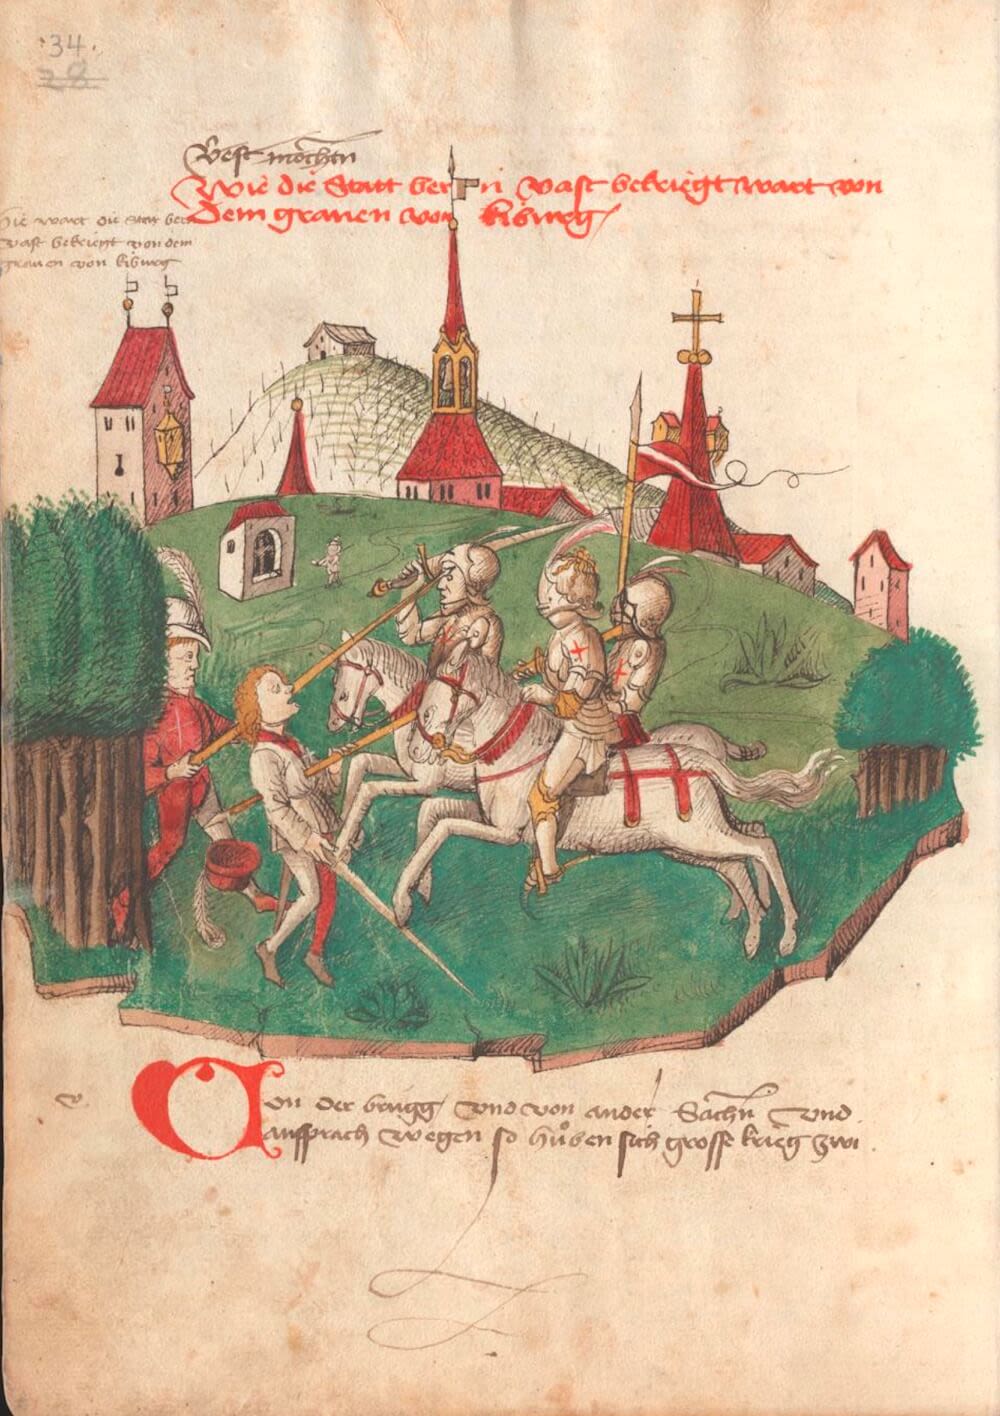 34.
28
Vest mochten
Wie die Statt bern vast bekriegt wart von
dem grauen von kiburg
Hie wart die statt bern
vast bekriegt von dem
grauen von kiburg
v.
Von der brugg vnd von ander Sachn vnd
anssprach wegen so huͦben sich grosse krieg zwi